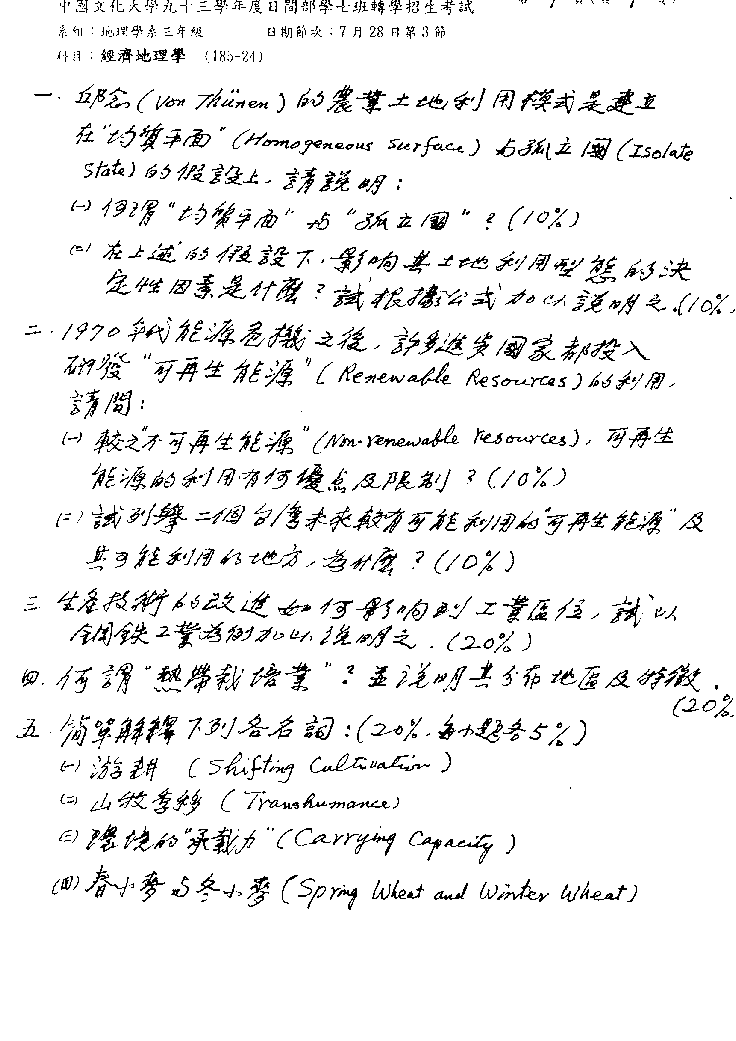 中國文化大學九十三學年度日間部學士班轉學招生考試
系組：地理學系三年級 日期節次：7月28日第3節
科目：經濟地理學 (185-24)
一．邱念(Von Thünen)的農業土地利用模式是建立
在"均質平面"(Homogeneous Surface)与孤立國(Isolate
State)的假設上，請說明：
(一)何謂"均質平面"与"孤立國"？(10%)
(二)在上述的假設下，影响其土地利用型態的決
定性因素是什麼？試根據公式加以說明之.(10%.
二．1970年代能源危機之後，許多進步國家都投入
研發"可再生能源"(Renewable Resources)的利用，
請問：
(一)較之"不可再生能源"(Non-renewable Resources)，可再生
能源的利用有何優点及限制？(10%)
(二)試列舉二個台灣未來較有可能利用的"可再生能源"及
其可能利用的地方，為什麼？(10%)
三 生產技術的改進如何影响到工業區位，試以
鋼鉄工業為例加以說明之．(20%)
四．何謂"熱帶栽培業"？並說明其分布地區及特徵．
(20%
五．簡單解釋下列各名詞：(20%．每小題各5%)
(一)游耕 (Shifting Cultivation)
(二)山牧季移(Transhumance)
(三)環境的"承載力"(Carrying Capacity)
(四)春小麥与冬小麥(Spring Wheat and Winter Wheat)